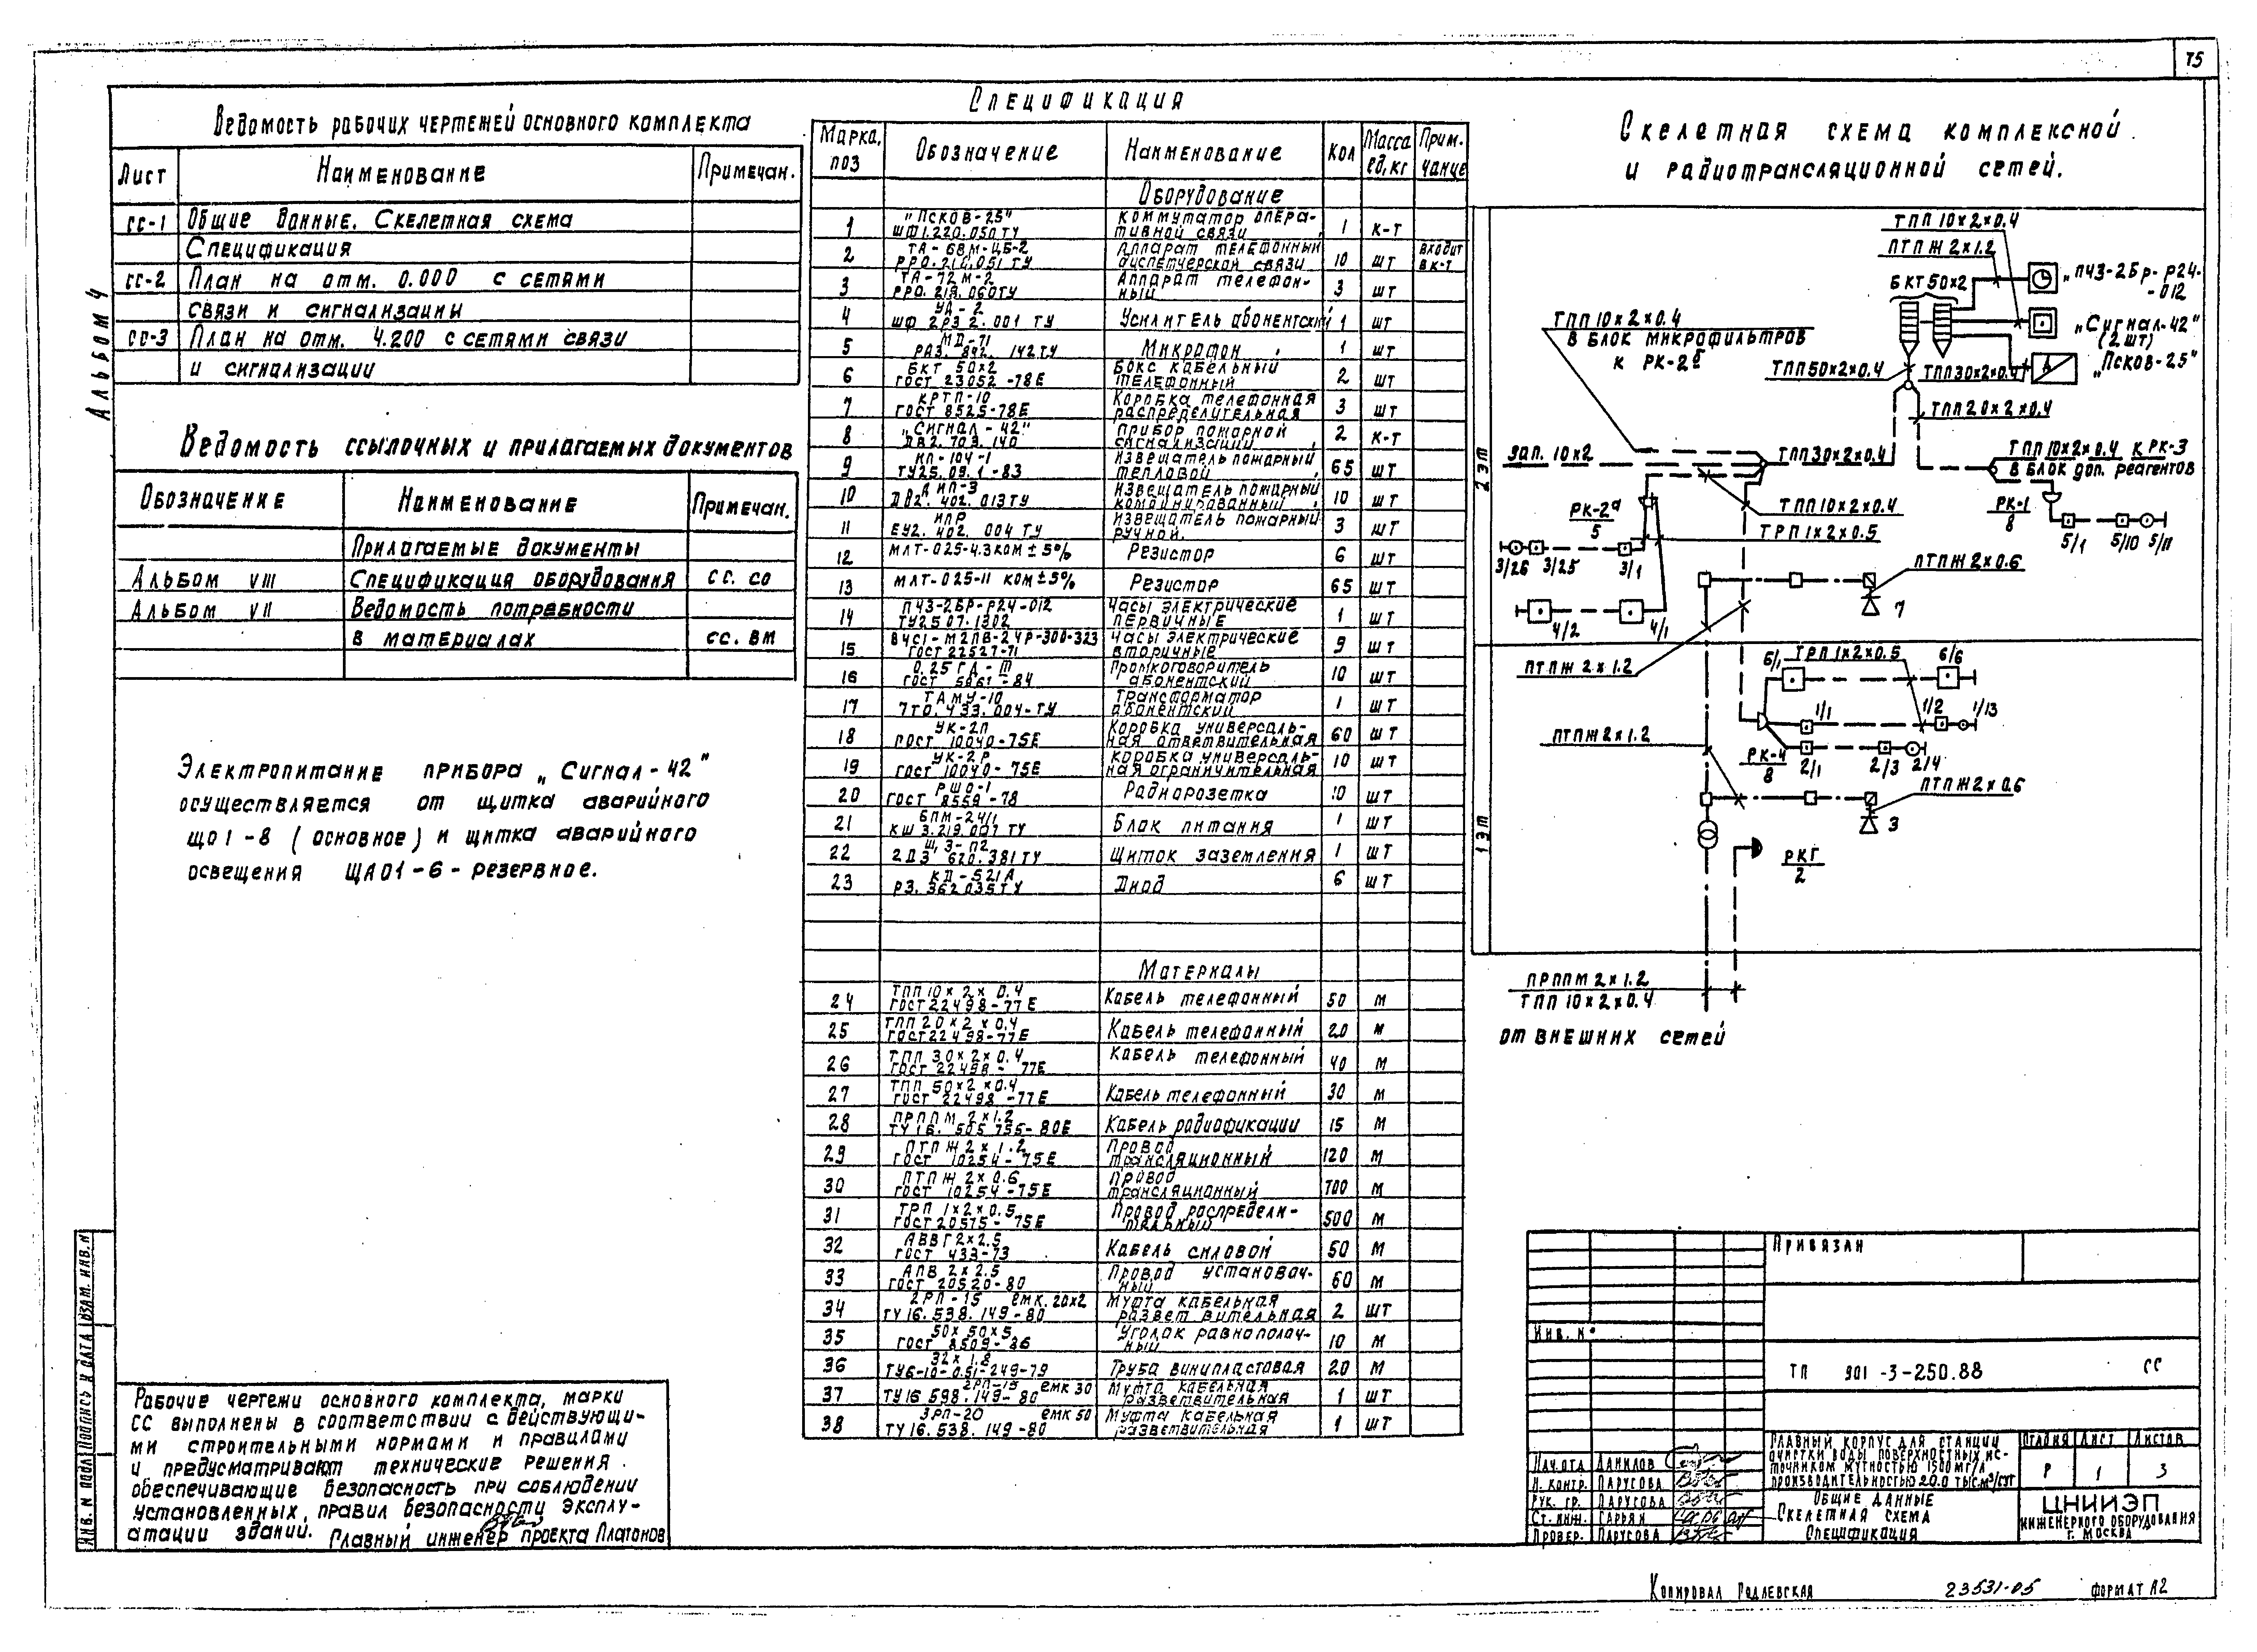 75
Альбом 4
Ведомость рабочих чертежей основного комплекта
Лист Наименование Примечан.
СС-1 Общие данные. Скелетная схема
Спецификация
СС-2 План на отм. 0.000 с сетями
связи и сигнализации
СС-3 План на отм. 4.200 с сетями связи
и сигнализации
Ведомость ссылочных и прилагаемых документов
Обозначение Наименование Примечан.
Прилагаемые документы
Альбом VIII Спецификация оборудования СС. СО
Альбом VII Ведомость потребности
в материалах СС. ВМ
Электропитание прибора „Сигнал-42"
осуществляется от щитка аварийного
ЩО1-8 (основное) и щитка аварийного
освещения ЩАО1-6-резервное.
Рабочие чертежи основного комплекта, марки
СС выполнены в соответствии с действующи-
ми строительными нормами и правилами
и предусматривают технические решения
обеспечивающие безопасность при соблюдении
установленных правил безопасности эксплу-
атации зданий. Главный инженер проекта Платонов
Инв. № подл Подпись и дата Взам. инв. №
Спецификация
Марка, поз Обозначение Наименование Кол Масса ед, кг Примечание
Оборудование
1 "Псков-25" ШФ1.220.050ТУ Коммутатор оперативной связи 1 к-т
2 ТА-68М-ЦБ-2 РРО.214.051 ТУ Аппарат телефонный диспетчерской связи 10 шт входит в к-т
3 ТА-72М-2 РРО.218.060ТУ Аппарат телефонный 3 шт
4 УА-2 ШФ 2РЗ 2.001 ТУ Усилитель абонентский 1 шт
5 МД-71 РАЗ.842.142ТУ Микрофон 1 шт
6 БКТ 50×2 ГОСТ 23052-78Е Бокс кабельный телефонный 2 шт
7 КРТП-10 ГОСТ 8525-78Е Коробка телефонная распределительная 3 шт
8 „Сигнал-42" ДВ2.703.140 Прибор пожарной сигнализации 2 к-т
9 ИП-104-1 ТУ25.09.1-83 Извещатель пожарный тепловой 65 шт
10 ДИП-3 ДВ2.402.013ТУ Извещатель пожарный комбинированный 10 шт
11 ИПР ЕУ2.402.004 ТУ Извещатель пожарный ручной. 3 шт
12 МЛТ-025-4.3ком±5% Резистор 6 шт
13 МЛТ-025-11 ком±5% Резистор 65 шт
14 ПЧЗ-2БР-Р24-012 ТУ25 07.1302 Часы электрические первичные 1 шт
15 ВЧС1-М2ПВ-24Р-300-323 ГОСТ 22527-71 Часы электрические вторичные 9 шт
16 0.25ГД-Ш ГОСТ 5961-84 Громкоговоритель абонентский 10 шт
17 ТАМУ-10 7ТО.433.004-ТУ Трансформатор абонентский 1 шт
18 УК-2П ГОСТ 10040-75Е Коробка универсальная ответвительная 60 шт
19 УК-2Р ГОСТ 10040-75Е Коробка универсальная ограничительная 10 шт
20 РШО-1 ГОСТ 8559-78 Радиорозетка 10 шт
21 БПМ-24/1 КШ 3.219.007 ТУ Блок питания 1 шт
22 ЩЗ-П2 2ДЗ 620.381ТУ Щиток заземления 1 шт
23 КД-521А РЗ.362035ТУ Диод 6 шт
Материалы
24 ТПП 10×2×0.4 ГОСТ22498-77Е Кабель телефонный 50 м
25 ТПП 20×2×0.4 ГОСТ22498-77Е Кабель телефонный 20 м
26 ТПП 30×2×0.4 ГОСТ 22498-77Е Кабель телефонный 40 м
27 ТПП 50×2×0.4 ГОСТ 22498-77Е Кабель телефонный 30 м
28 ПРППМ 2×1.2 ТУ16.505.755-80Е Кабель радиофикации 15 м
29 ПТПЖ 2×1.2 ГОСТ 10254-75Е Провод трансляционный 120 м
30 ПТПЖ 2×0.6 ГОСТ 10254-75Е Провод трансляционный 700 м
31 ТРП 1×2×0.5 ГОСТ20575-75Е Провод распределительный 500 м
32 АВВГ2×2.5 ГОСТ 433-73 Кабель силовой 50 м
33 АПВ 2×2.5 ГОСТ 20520-80 Провод установочный 60 м
34 2РП-15 емк. 20×2 ТУ16.538.149-80 Муфта кабельная разветвительная 2 шт
35 50×50×5 ГОСТ 8509-86 Уголок равнополочный 10 м
36 32×1.8 ТУ6-10-051-249-79 Труба винипластовая 20 м
37 2РП-15 емк 30 ТУ16 598.149-80 Муфта кабельная разветвительная 1 шт
38 3РП-20 емк 50 ТУ16.538.149-80 Муфта кабельная разветвительная 1 шт
Скелетная схема комплексной
и радиотрансляционной сетей.
ТПП 10×2×0.4
ПТПЖ 2×1.2
БКТ 50×2
„ПЧЗ-2Бр-Р24-
-012
„Сигнал-42"
(2 шт)
„Псков-25"
ТПП 10×2×0.4
в блок микрофильтров
к РК-2б
ТПП50×2×0.4 ТПП30×2×0.4
ТПП20×2×0.4
2 эт
зап. 10×2
ТПП30×2×0.4
ТПП 10×2×0.4 к РК-3
в блок доп. реагентов
РК-2а
5
ТПП10×2×0.4
ТРП 1×2×0.5
РК-1
8
5/1 5/10 5/11
3/26 3/25 3/1
ПТПЖ 2×0.6
7
4/2 4/1
ПТПЖ 2×1.2
1 эт
6/1 ТРП1×2×0.5 6/6
1/1 1/2 1/13
ПТПЖ2×1.2
РК-4
8
2/1 2/3 2/4
ПТПЖ2×0.6
3
РКГ
2
ПРППМ 2×1.2
ТПП 10×2×0.4
от внешних сетей
Привязан
Инв. №
ТП 901-3-250.88 СС
Нач.отд Данилов
Н. контр. Парусова
Рук. гр. Парусова
Ст. инж. Гарьян
Провер. Парусова
Главный корпус для станции
очистки воды поверхностных ис-
точником мутностью 1500мг/л
производительностью 20.0 тыс.м³/сут
Стадия Лист Листов
Р 1 3
Общие данные
Скелетная схема
Спецификация
ЦНИИЭП
инженерного оборудования
г. Москва
Копировал Родлевская
23531-05
формат А2